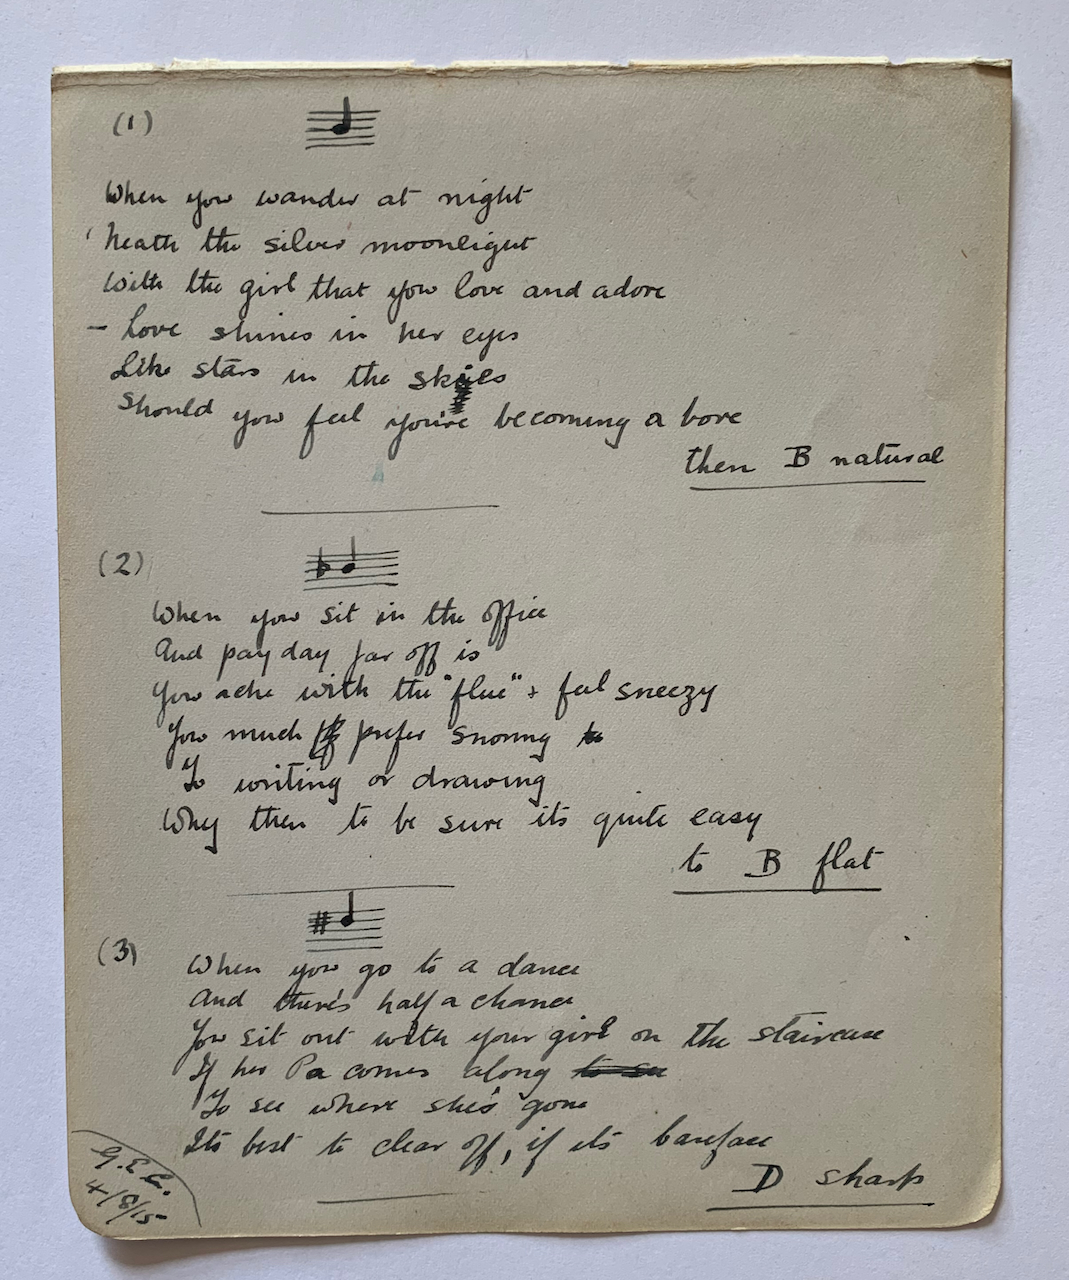 (1)
When you wander at night
'Neath the silver moonlight
With the girl that you love and adore
- Love shines in her eyes
Like stars in the skies
Should you feel you're becoming a bore
then B natural
(2)
When you sit in the office
And pay day far off is
You ache with the "flue" + feel sneezy
You much prefer snoring to
To writing or drawing
Why then to be sure its quite easy
to B flat
(3)
When you go to a dance
And there's half a chance
You sit out with your girl on the staircase
If her Pa comes along to see
To see where she's gone
Its best to clear off, if its bareface
D sharp
G.E.G.
4/8/15